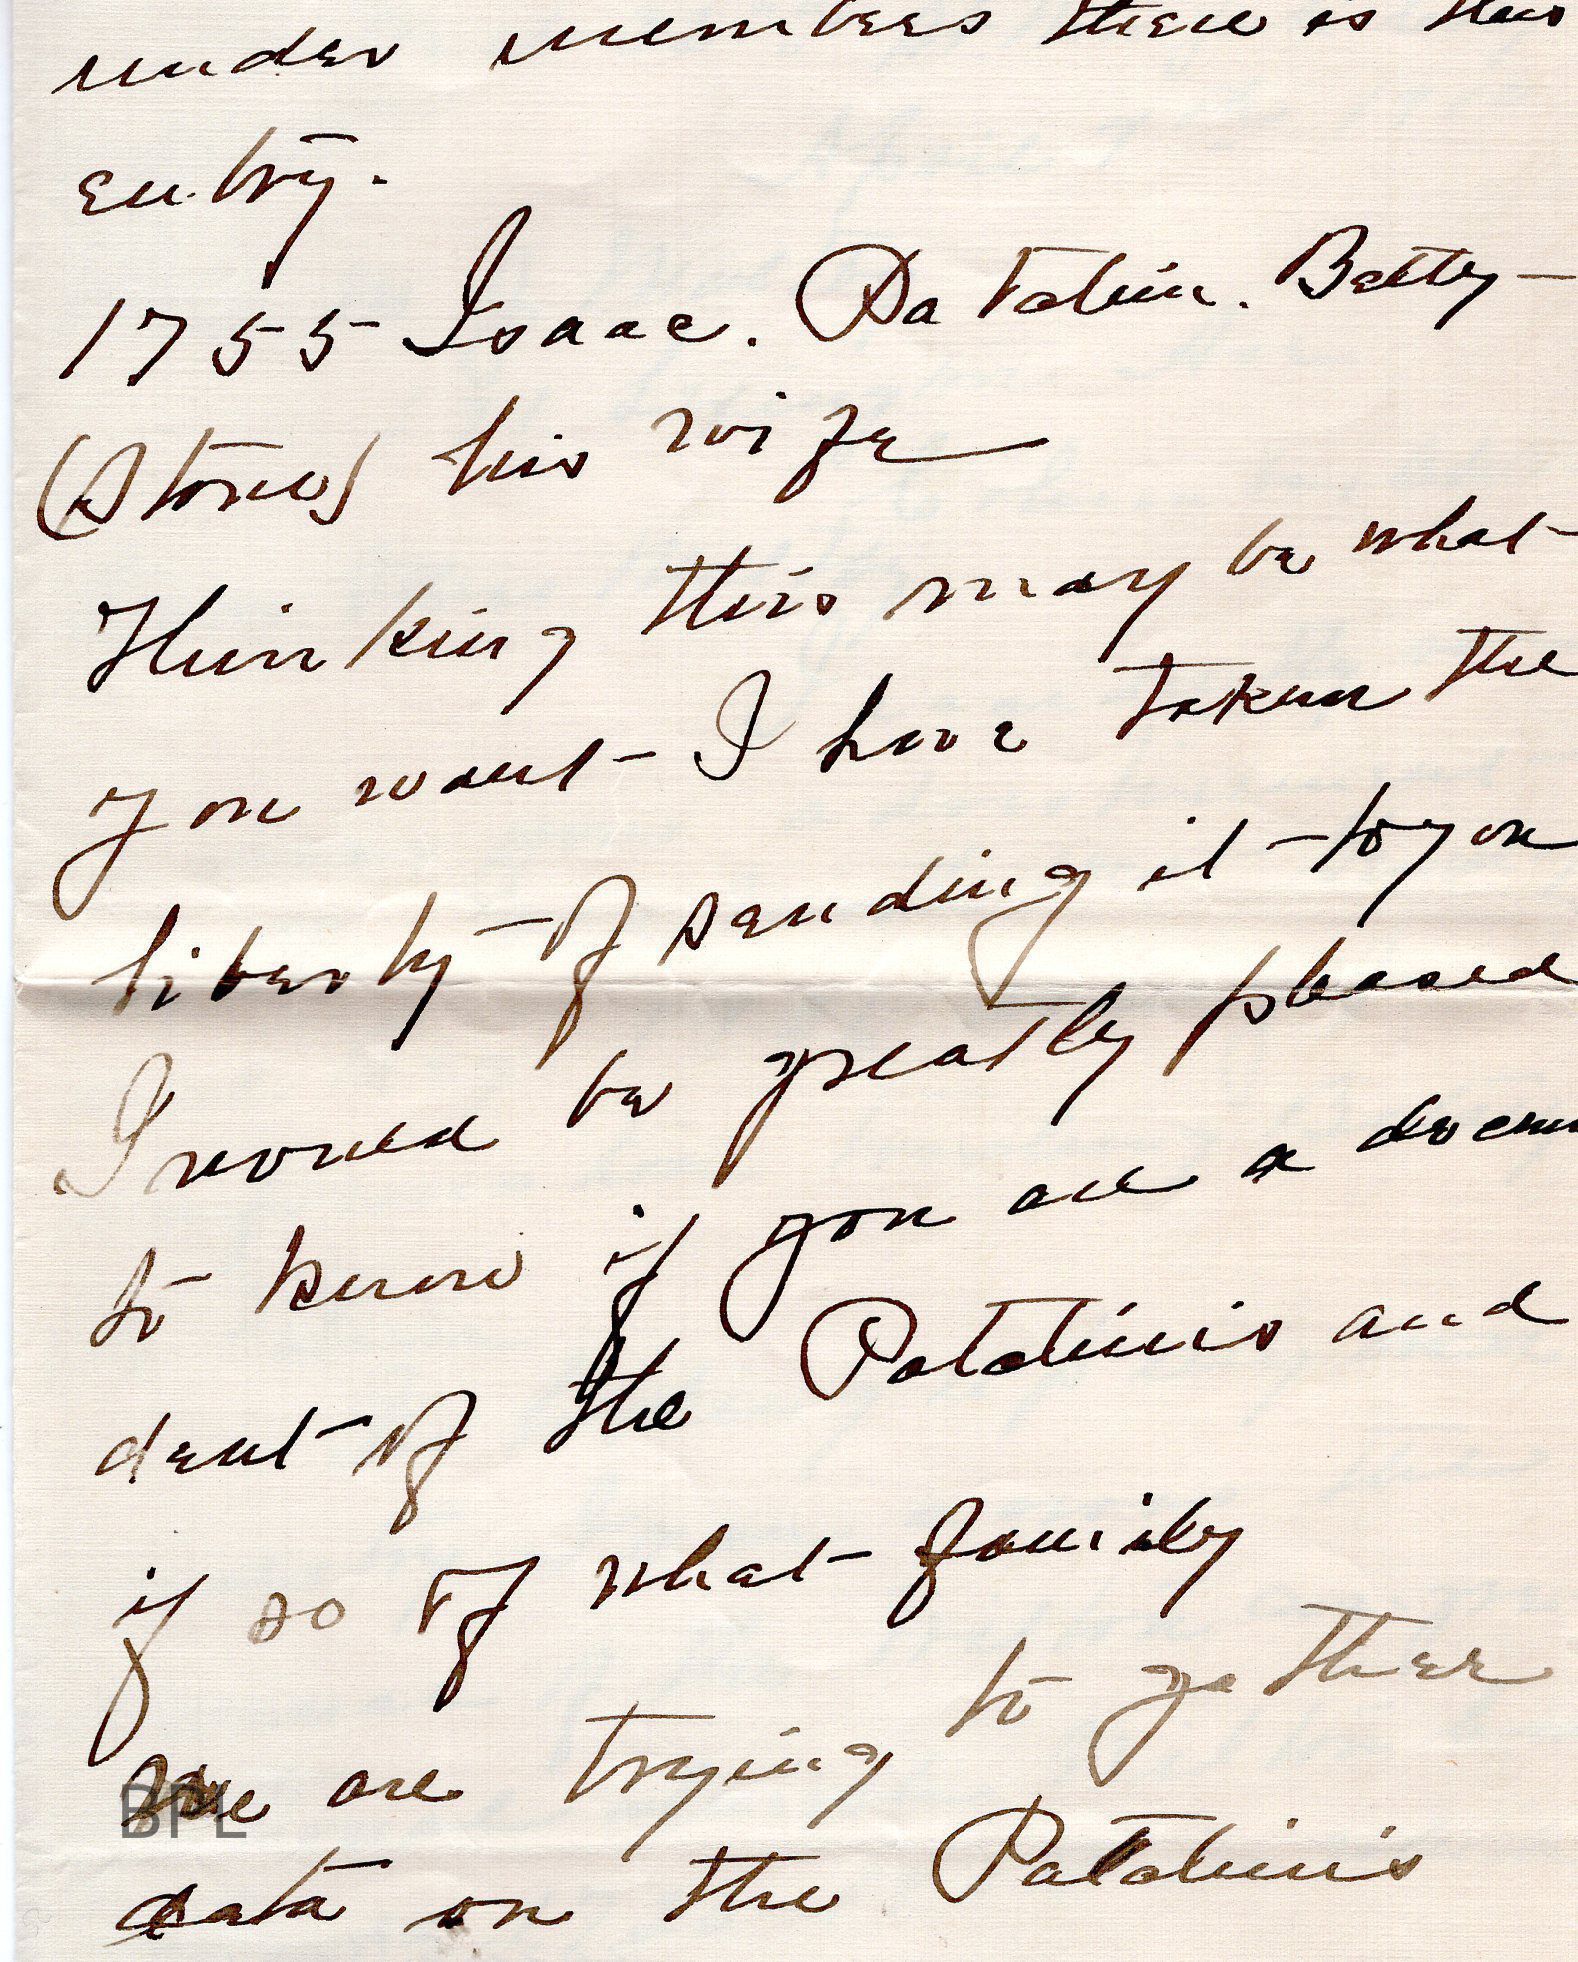 under members there is this
entry.
1755 Isaac. Patchin. Betty-
(Stone) his wife
Thinking this may be what
you want - I have taken the
liberty - of sending it - to you
I would be greatly pleased
to know if you are a decen
dent - of the Patchin's and
if so of what - family
We are trying to gather
BPL
data on the Patchin's